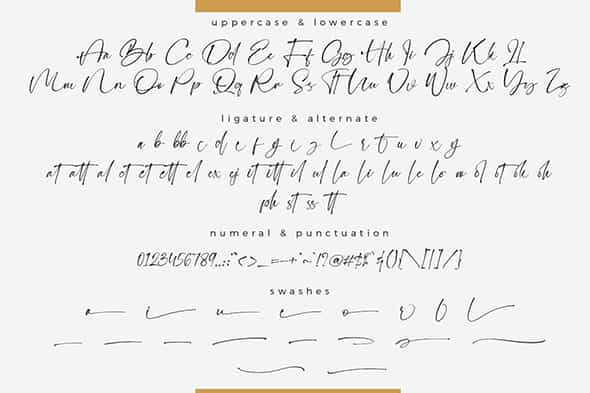 uppercase & lowercase
Aa Bb Cc Dd Ee Ff Gg Hh Ii Jj Kk Ll
Mm Nn Oo Pp Qq Rr Ss Tt Uu Vv Ww Xx Yy Zz
ligature & alternate
a b bb c d e f g i j l r t u v x y
at att al ct et ett el ex ef it itt il ul la li lu le lo ol ot oh
ph st ss tt
numeral & punctuation
0123456789
swashes
a i u e o